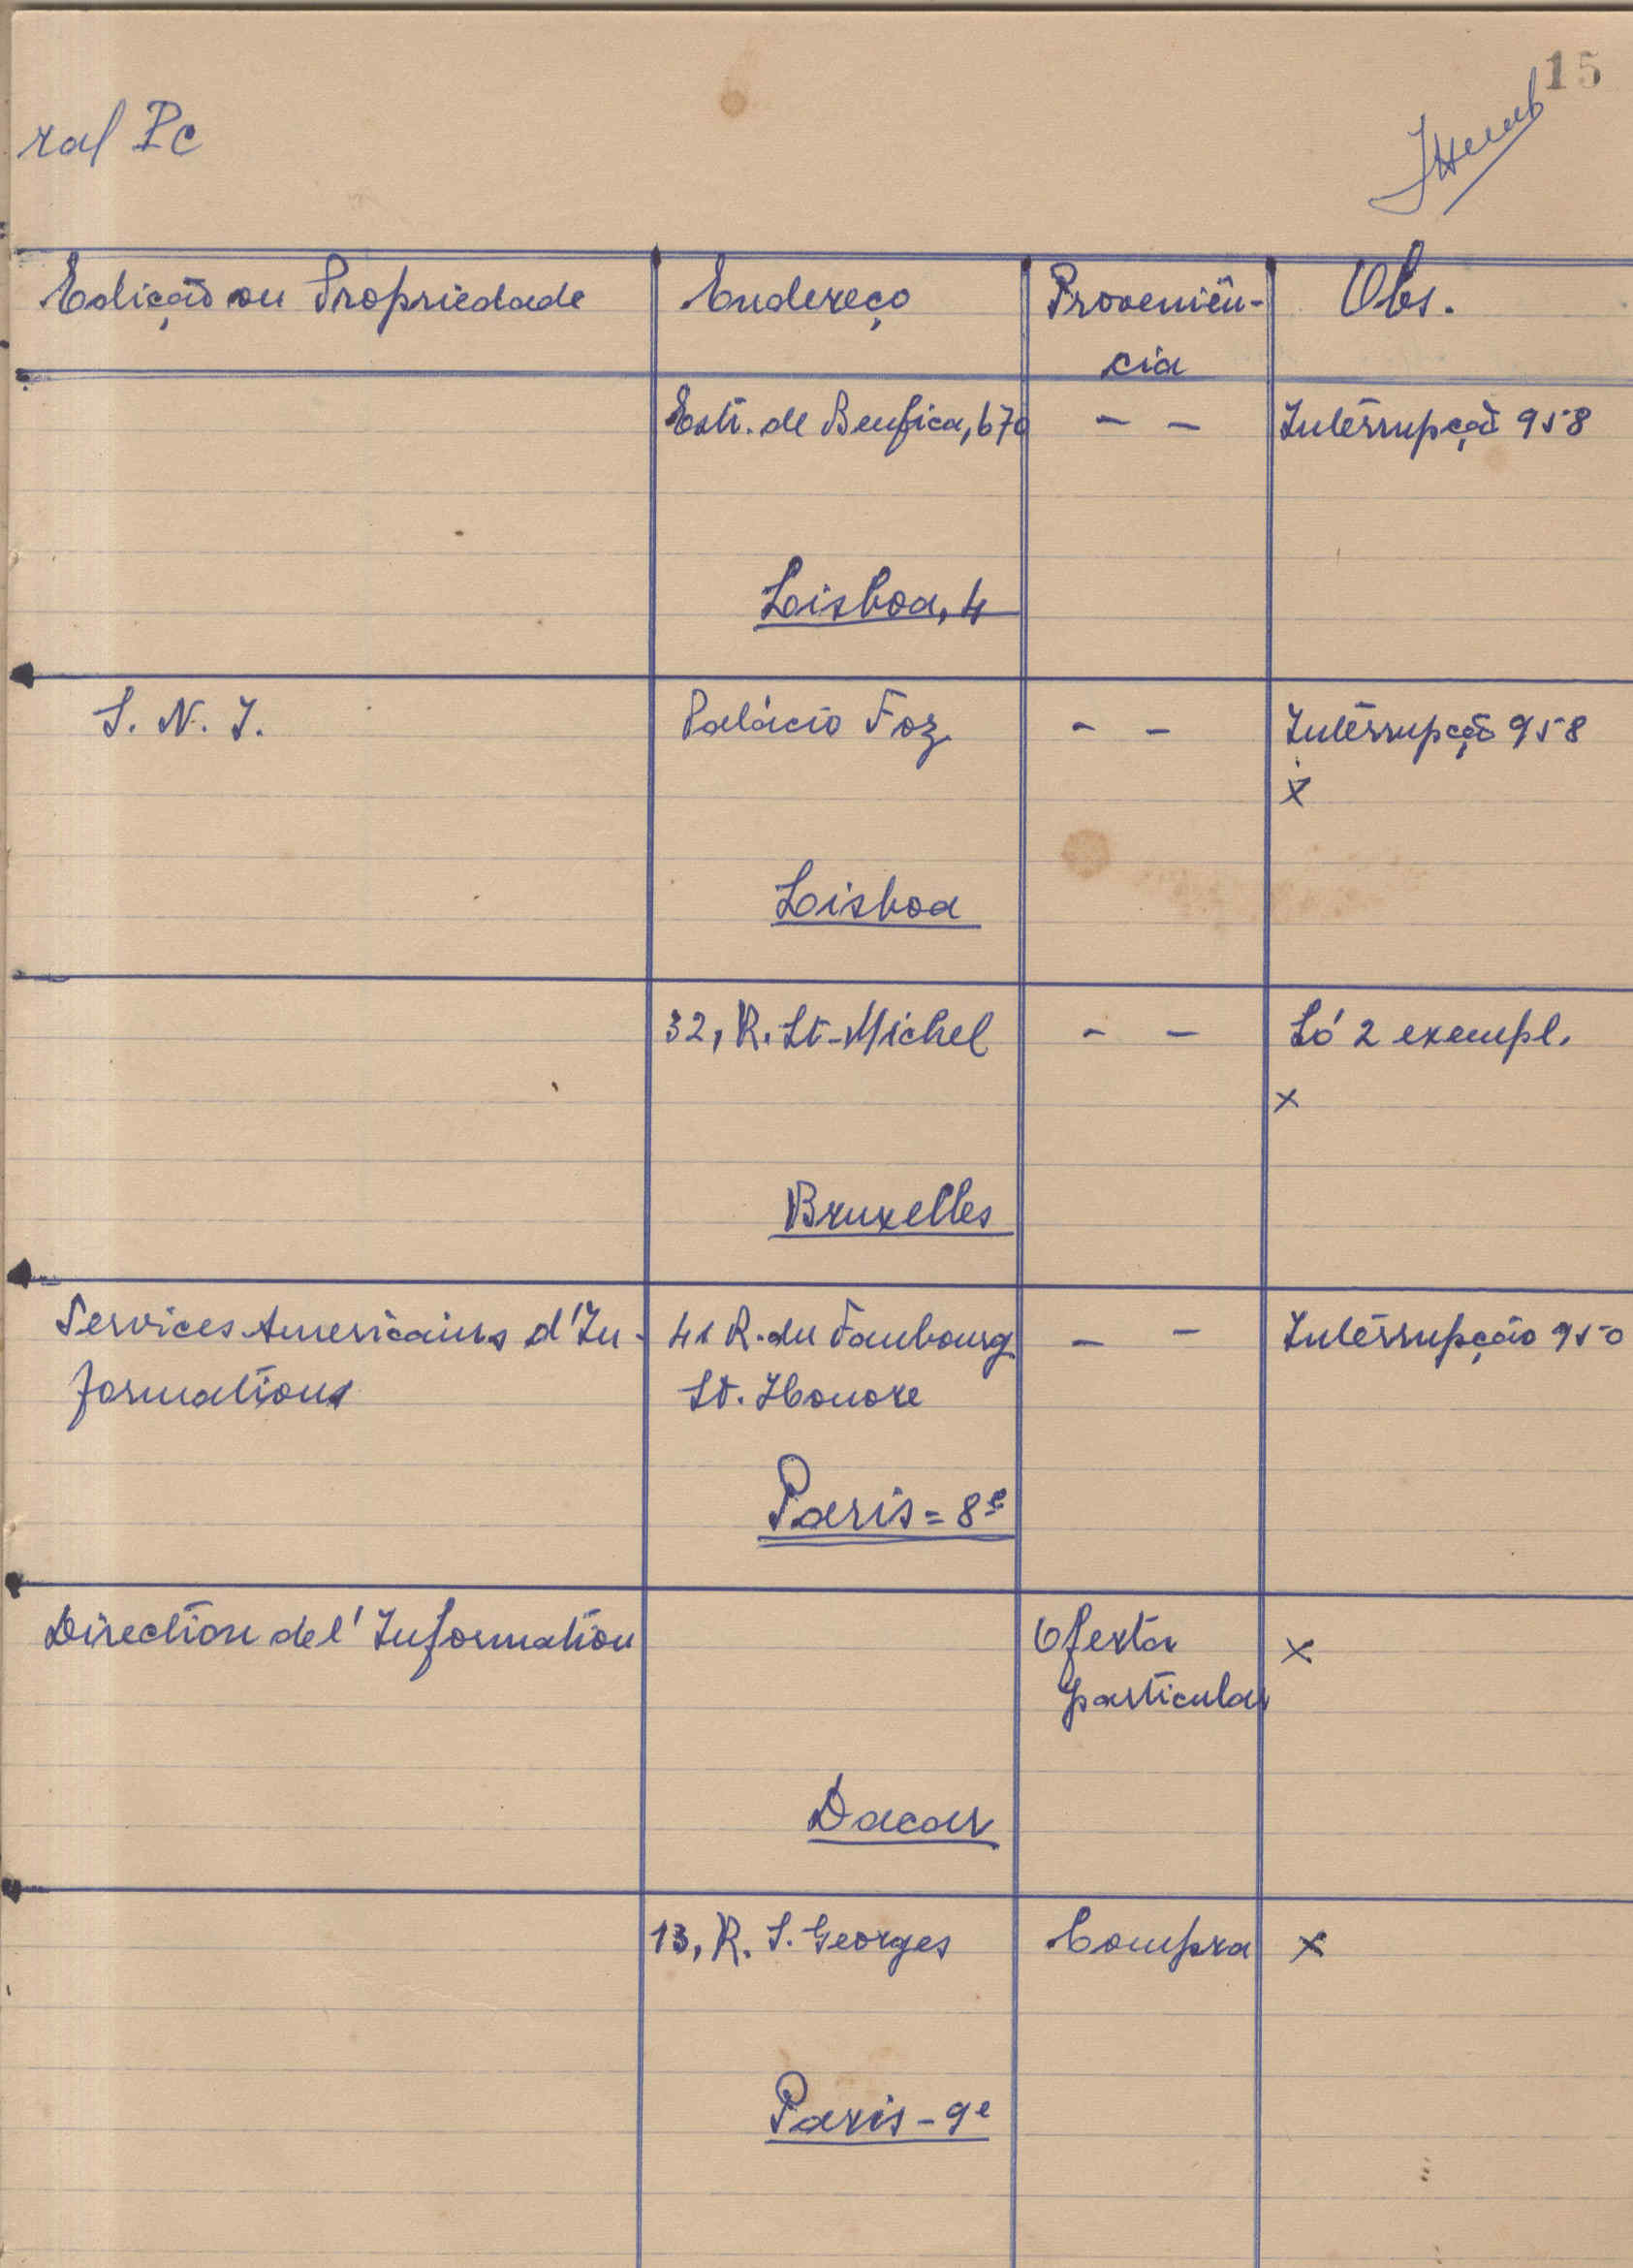 15
ral Pc
Edição ou Propriedade Endereço Proveniên- Obs.
cia
Estr. de Benfica, 670 - - Interrupção 958
Lisboa, 4
S. N. I. Palácio Foz - - Interrupção 958
x
Lisboa
32, R. St-Michel - - Só 2 exempl.
x
Bruxelles
Services Americains d'In- 41 R. du Faubourg - - Interrupção 950
formations St. Honore
Paris = 8e
Direction de l'Information Oferta x
particular
Dacar
13, R. S. Georges Compra x
Paris - 9e